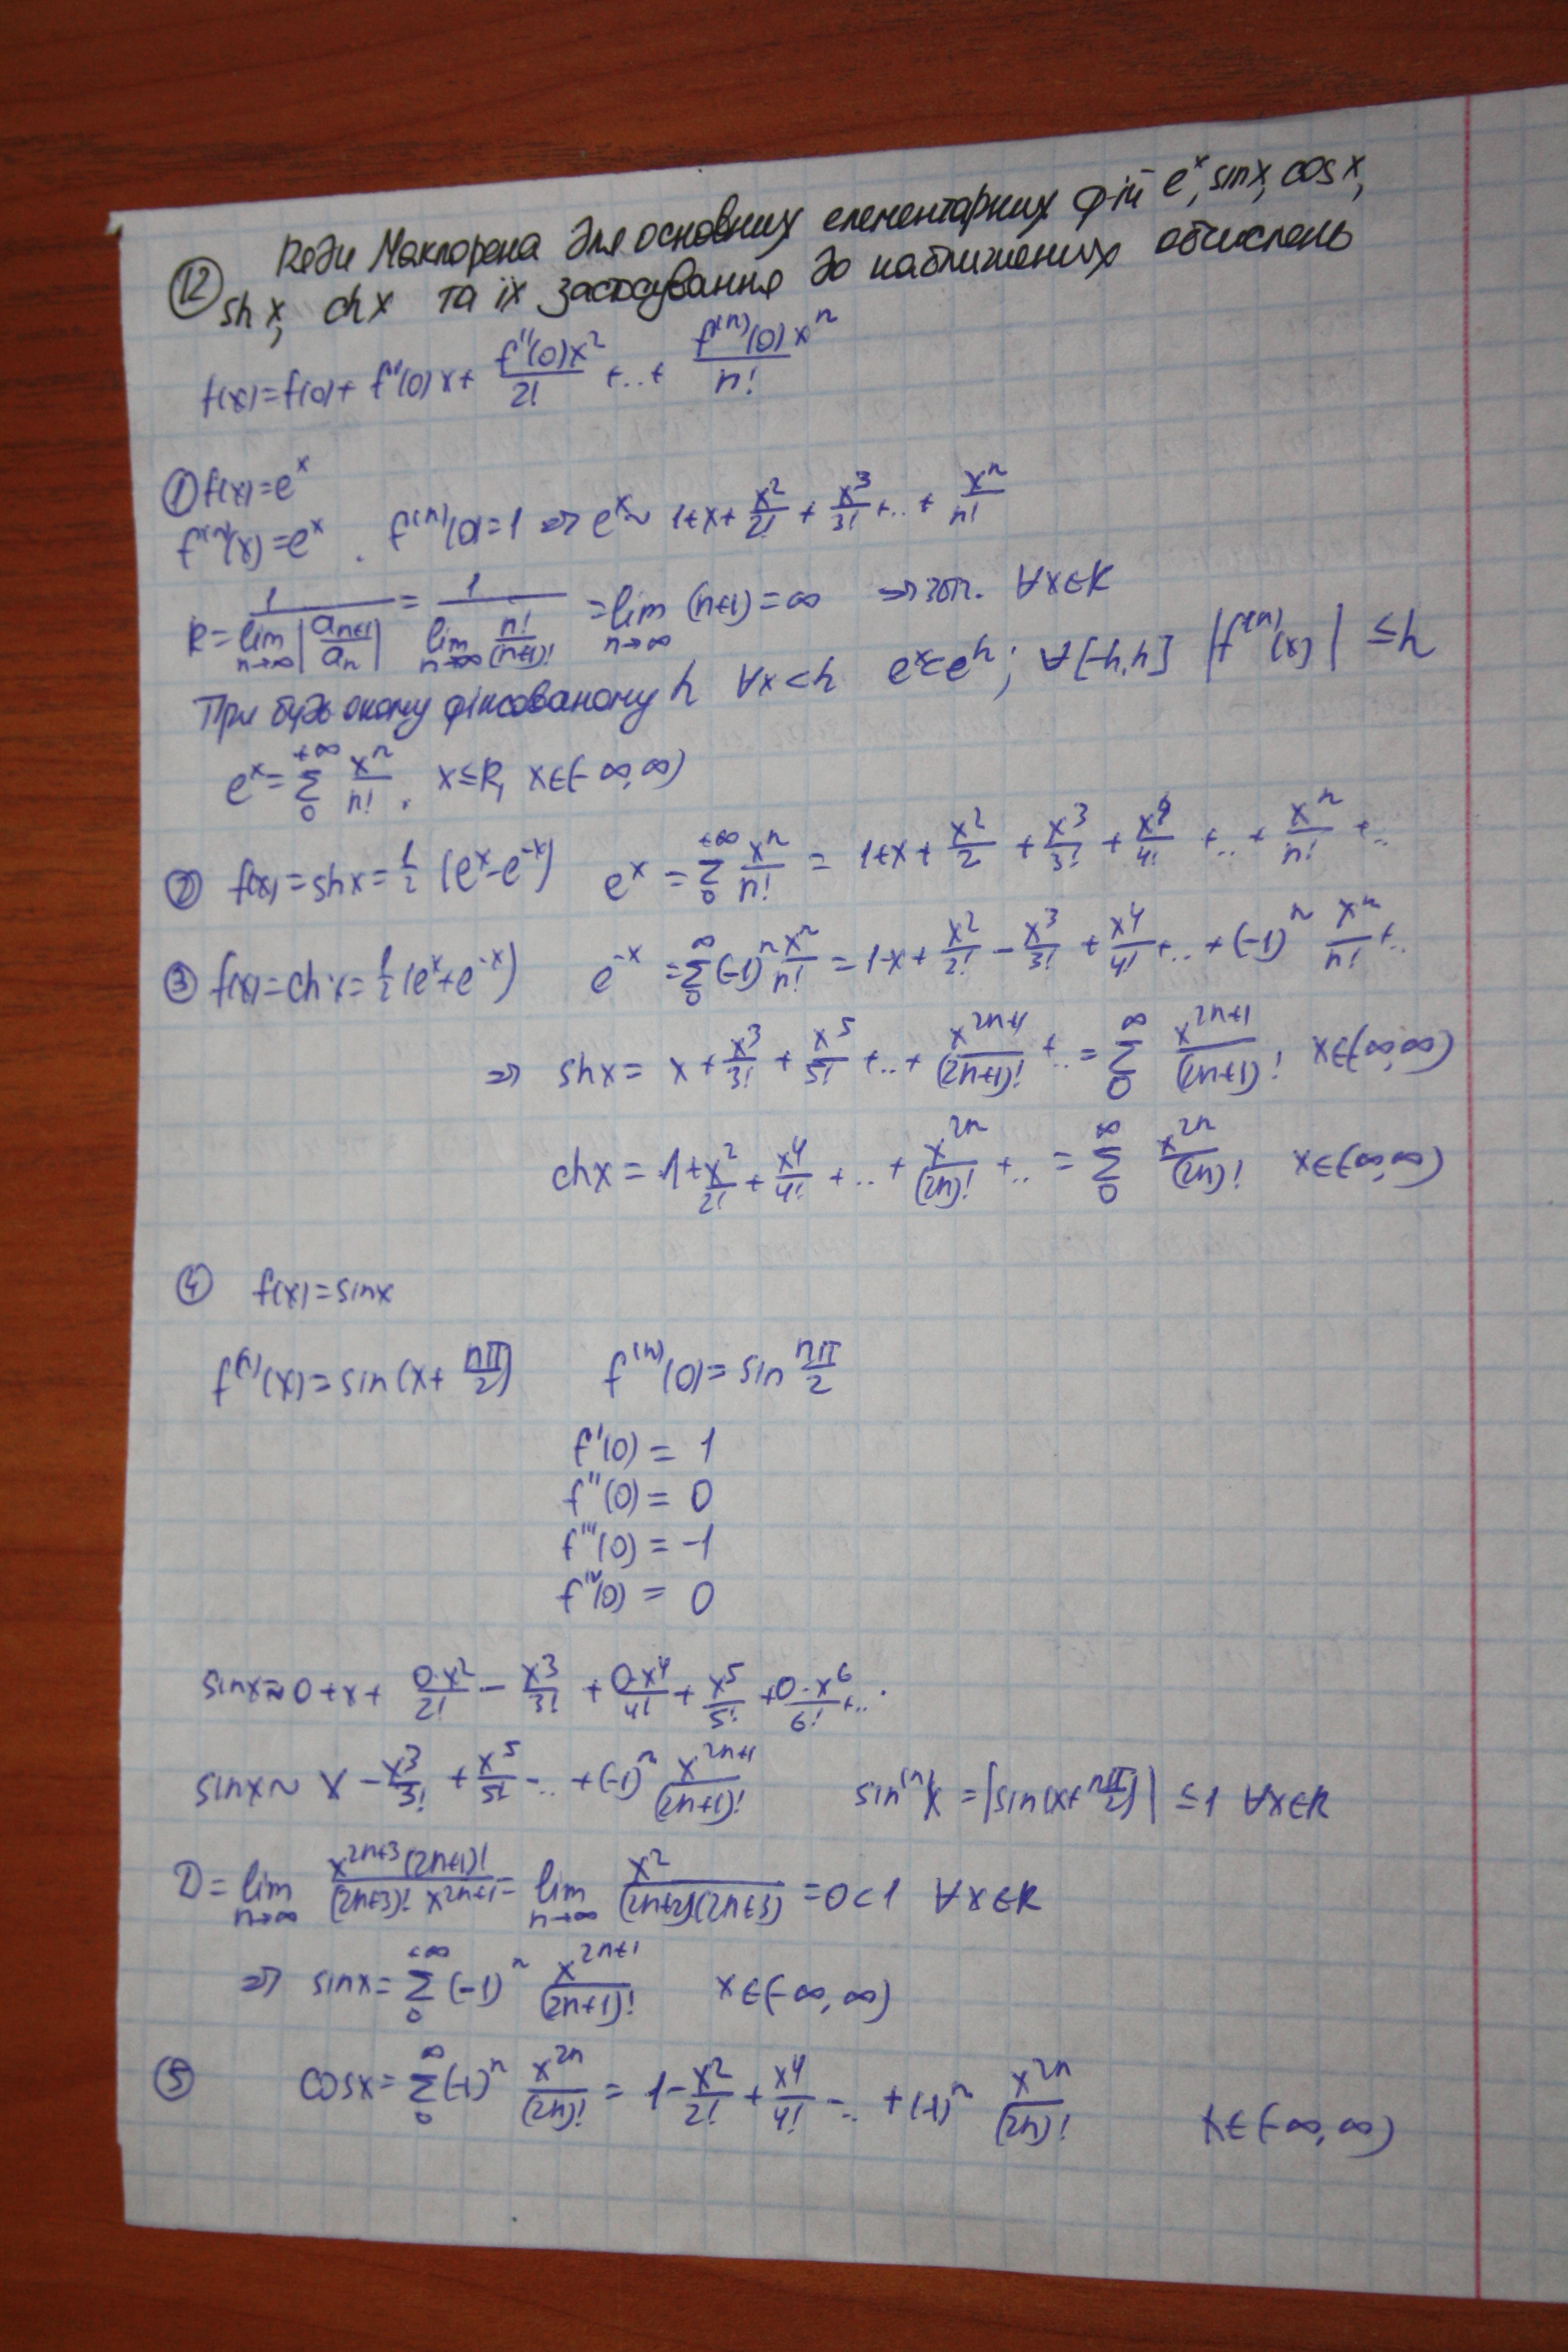 ⑫ Ряди Маклорена для основних елементарних ф-ій e^x, sinx, cosx,
shx, chx та їх застосування до наближених обчислень
f(x)=f(0)+f'(0)x+ f''(0)x^2/2! +..+ f^(n)(0)x^n/n!
① f(x)=e^x
f^(n)(x)=e^x. f^(n)(0)=1 => e^x ~ 1+x+ x^2/2! + x^3/3! +..+ x^n/n!
R= 1/(lim n→∞ |a_{n+1}/a_n|) = 1/(lim n→∞ n!/(n+1)!) = lim n→∞ (n+1)=∞ => збіг. ∀x∈R
При будь якому фіксованому h ∀x<h e^x<e^h; ∀[-h,h] |f^(n)(x)| ≤ h
e^x= Σ_0^{+∞} x^n/n!, x≤R, x∈(-∞,∞)
② f(x)=shx= 1/2 (e^x-e^-x) e^x = Σ_0^{+∞} x^n/n! = 1+x+ x^2/2 + x^3/3! + x^4/4! +..+ x^n/n! +..
③ f(x)=chx= 1/2 (e^x+e^-x) e^-x = Σ_0^∞ (-1)^n x^n/n! = 1-x+ x^2/2! - x^3/3! + x^4/4! +..+(-1)^n x^n/n! +..
=> shx= x+ x^3/3! + x^5/5! +..+ x^{2n+1}/(2n+1)! +..= Σ_0^∞ x^{2n+1}/(2n+1)! x∈(-∞,∞)
chx = 1+ x^2/2! + x^4/4! +..+ x^{2n}/(2n)! +.. = Σ_0^∞ x^{2n}/(2n)! x∈(-∞,∞)
④ f(x)=sinx
f^(n)(x)=sin(x+ nπ/2) f^(n)(0)=sin nπ/2
f'(0)= 1
f''(0)= 0
f'''(0)= -1
f^IV(0)= 0
sinx≈0+x+ 0·x^2/2! - x^3/3! + 0·x^4/4! + x^5/5! + 0·x^6/6! +..
sinx~ x - x^3/3! + x^5/5! -..+(-1)^n x^{2n+1}/(2n+1)! sin^(n)x =|sin(x+ nπ/2)| ≤1 ∀x∈R
D= lim n→∞ x^{2n+3}(2n+1)!/((2n+3)! x^{2n+1}) = lim n→∞ x^2/((2n+2)(2n+3)) =0<1 ∀x∈R
=> sinx= Σ_0^{+∞} (-1)^n x^{2n+1}/(2n+1)! x∈(-∞,∞)
⑤ cosx= Σ_0^∞ (-1)^n x^{2n}/(2n)! = 1- x^2/2! + x^4/4! -.. +(-1)^n x^{2n}/(2n)! x∈(-∞,∞)